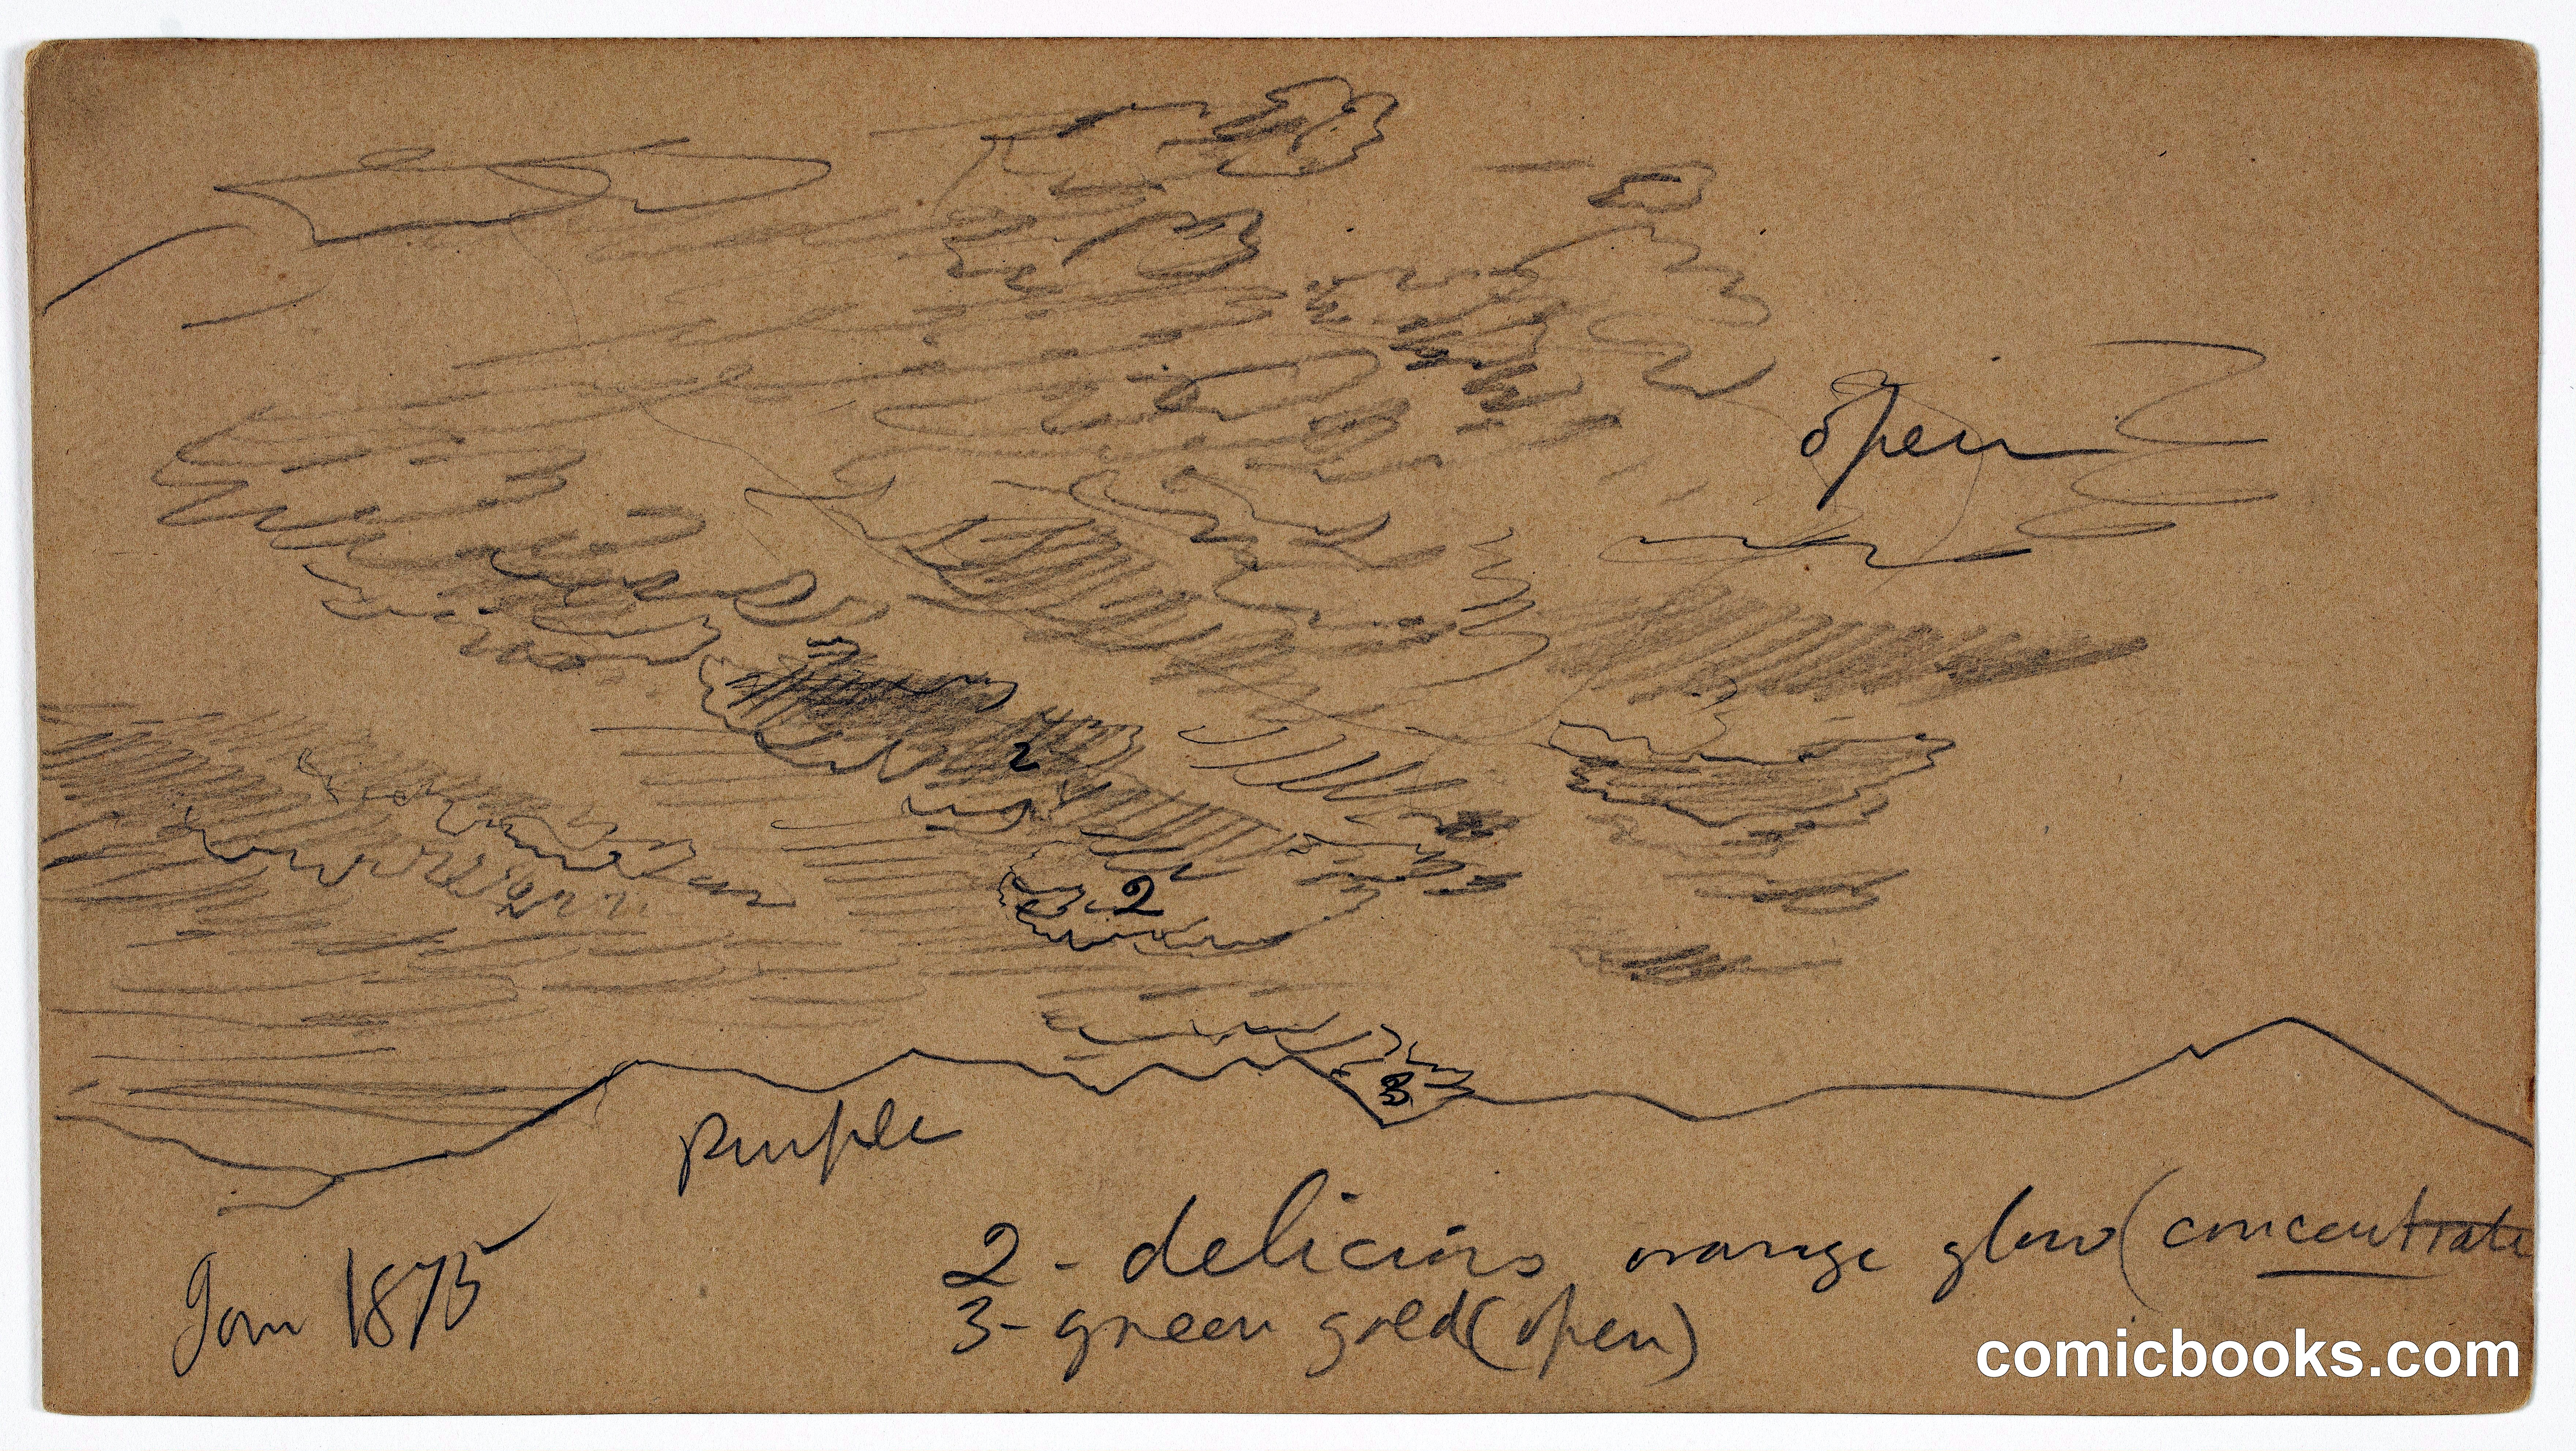 open
2
2
3
purple
2 - delicious orange glow (concentrate
3 - green gold (open)
Jan 1875
comicbooks.com